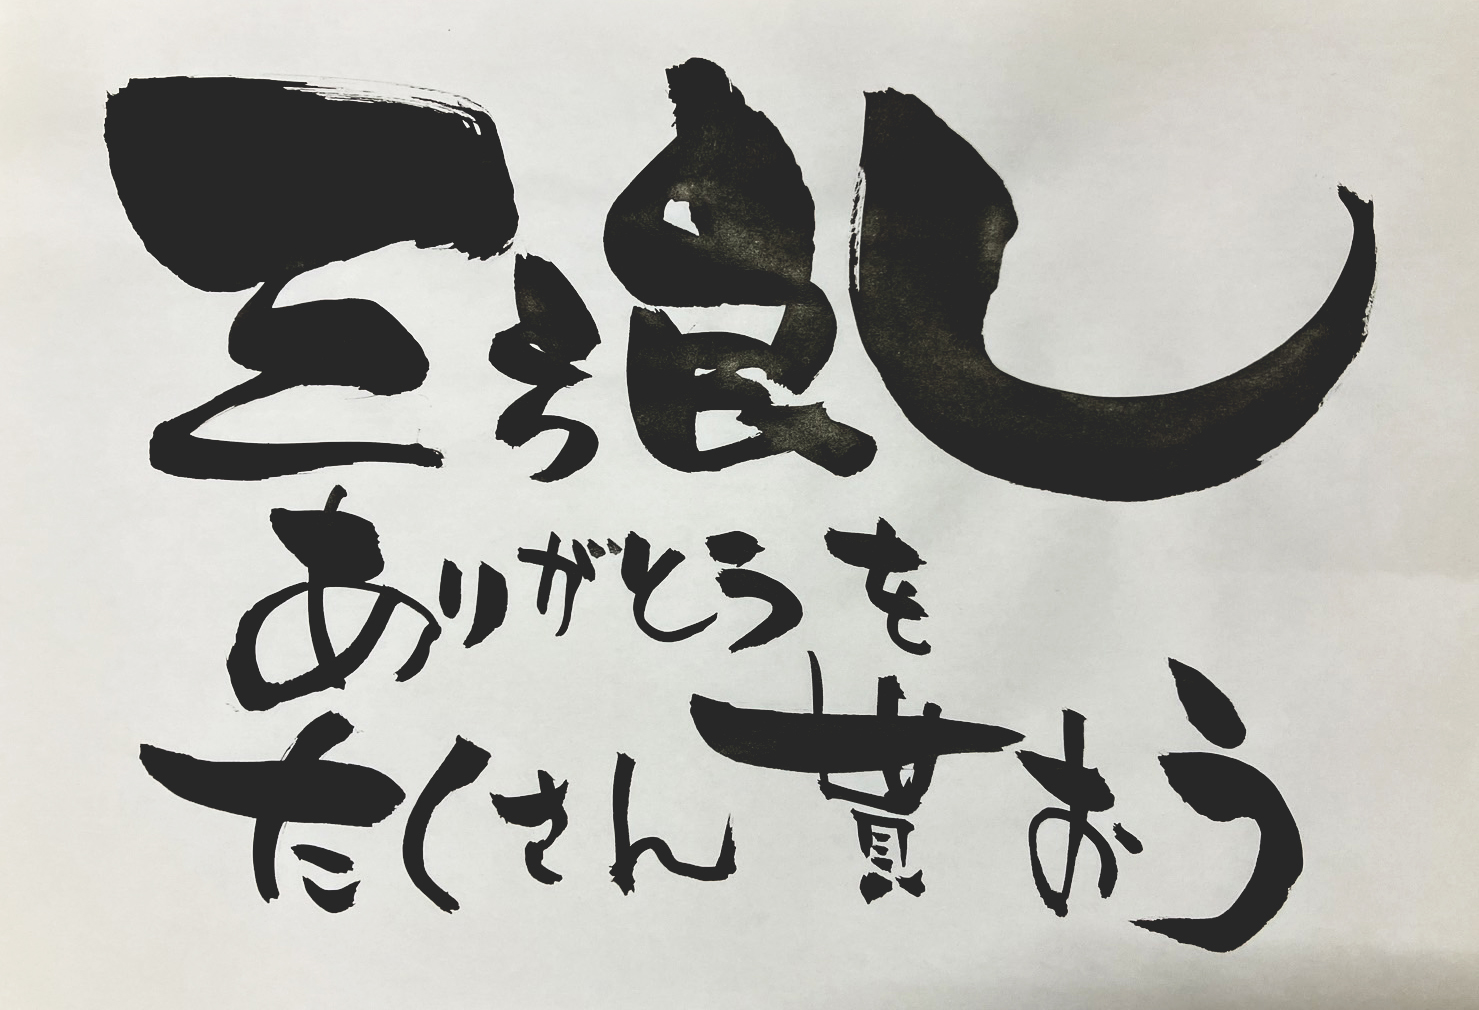 三方良し
ありがとうを
たくさん貰おう